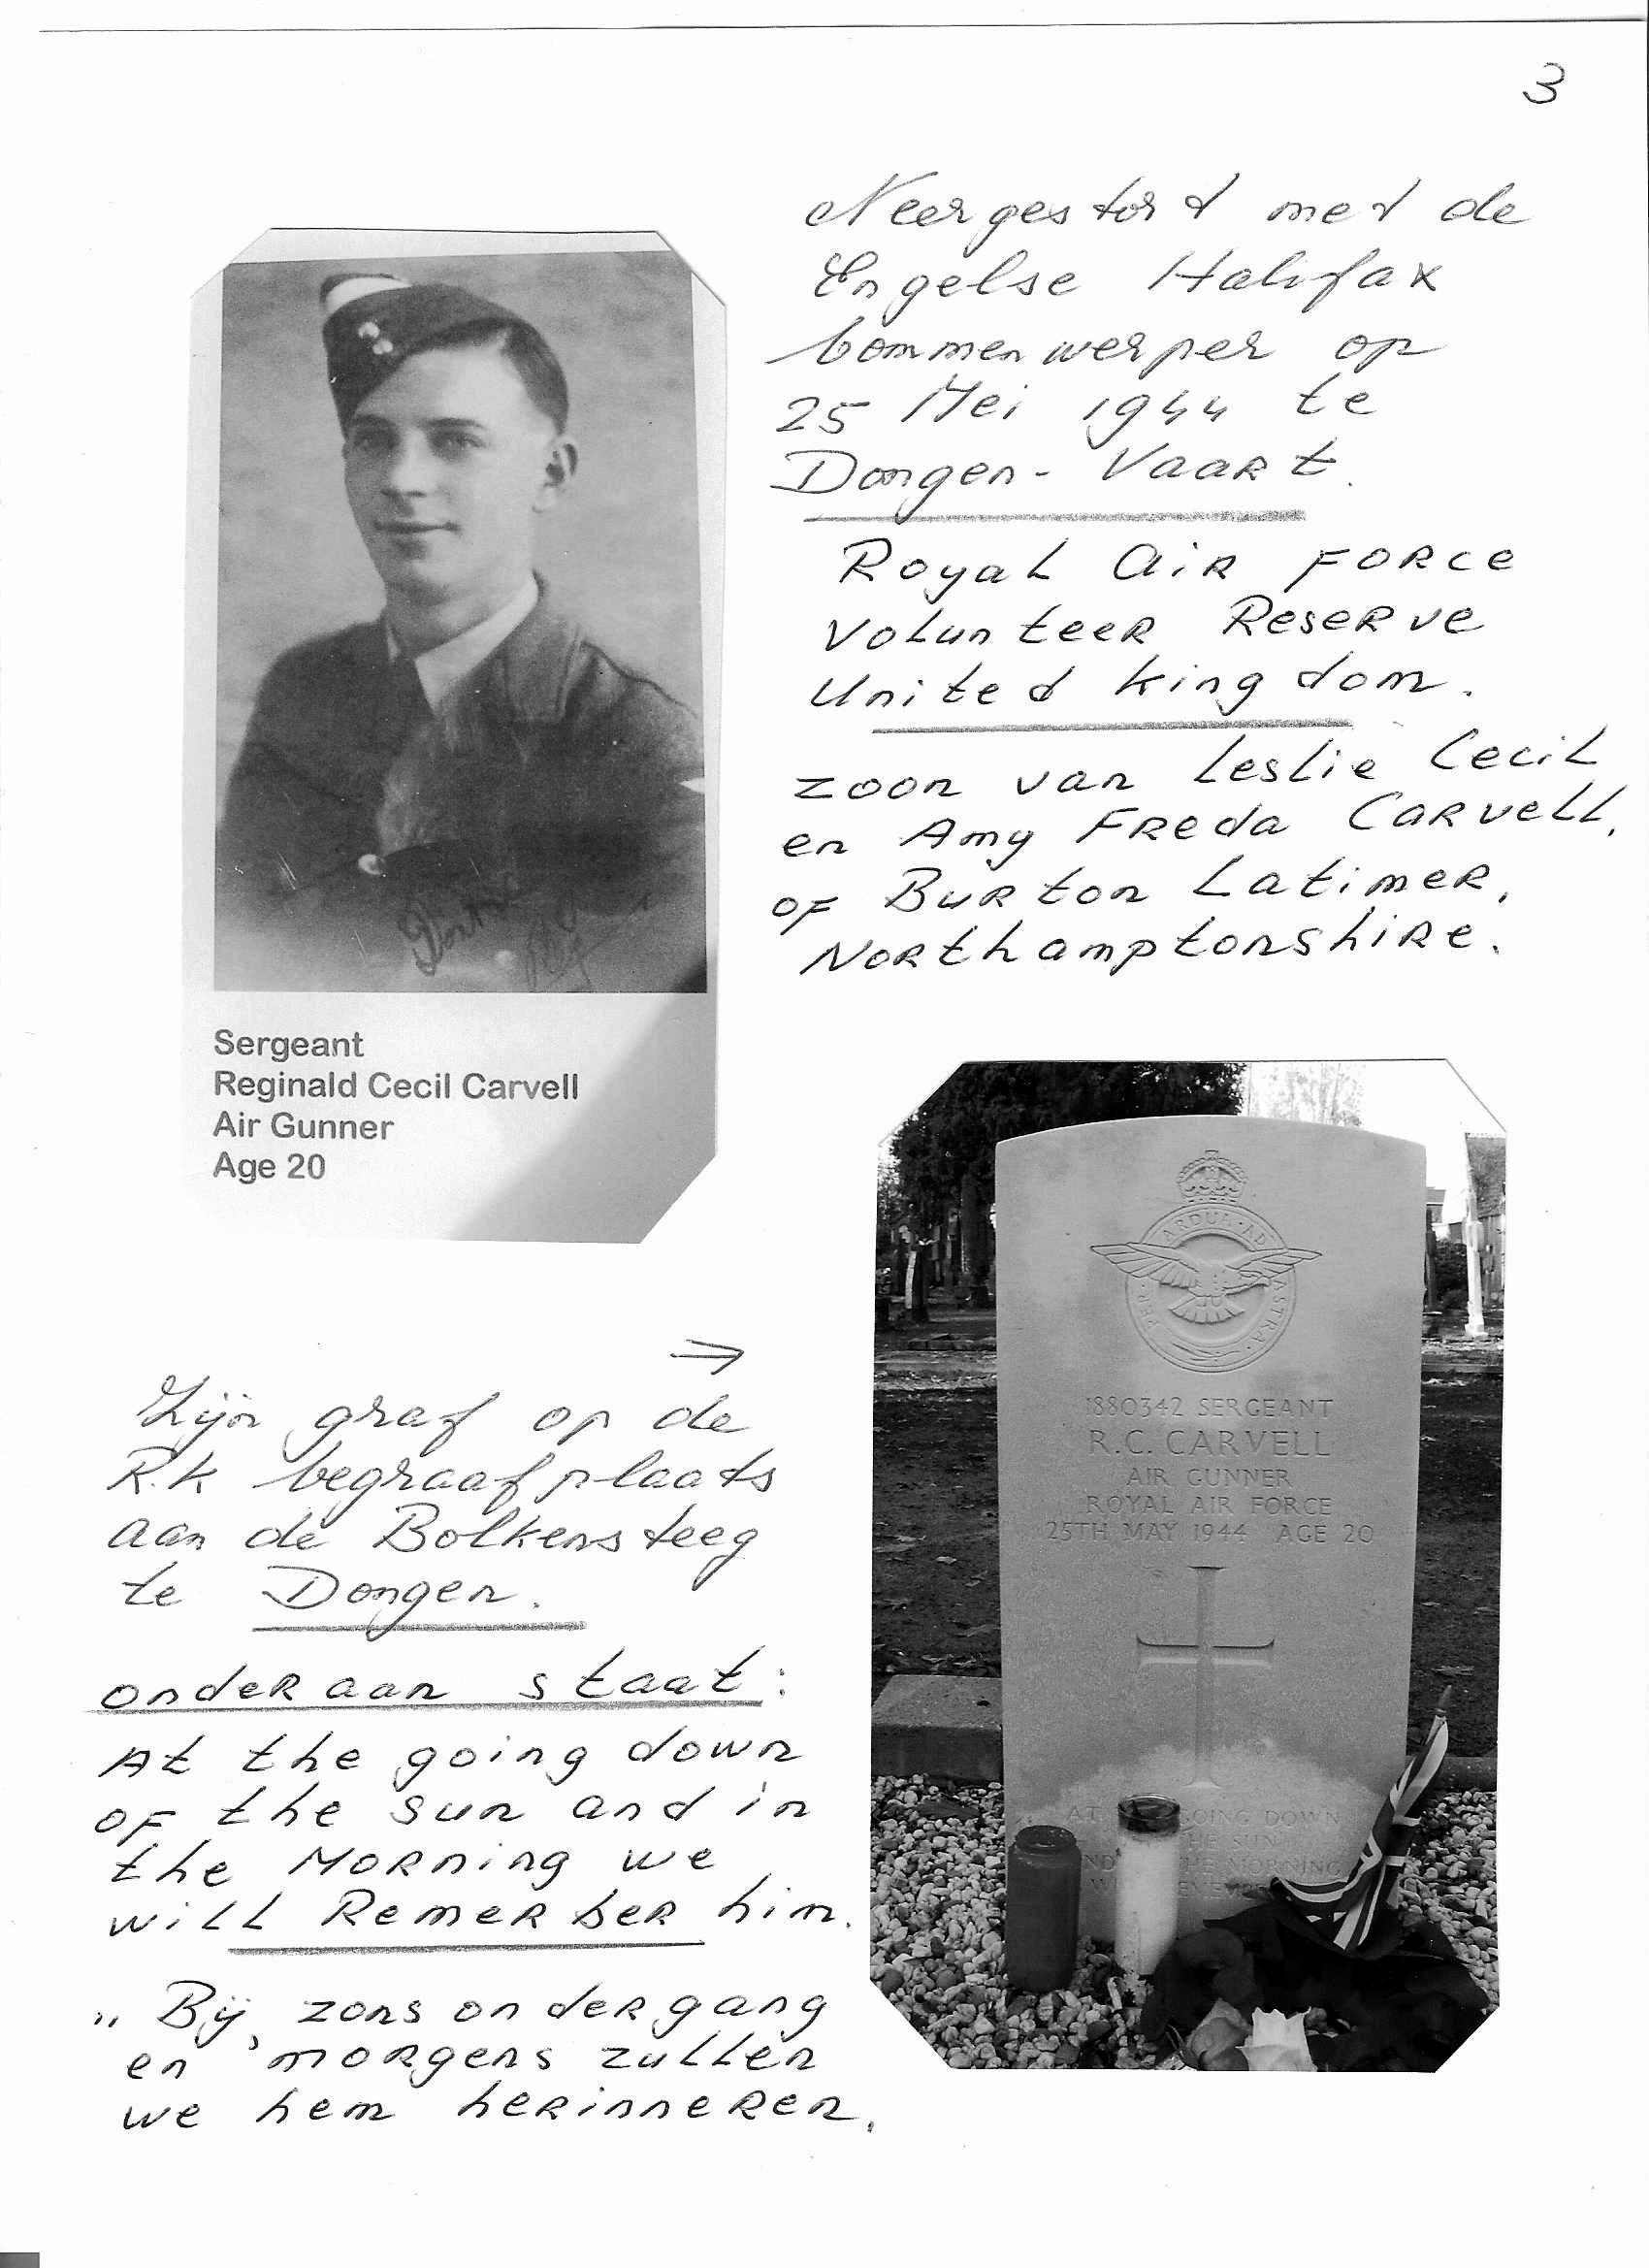 3
Neergestord met de
Engelse Halifax
bommenwerper op
25 Mei 1944 te
Dongen-Vaart.
Royal Air Force
Volunteer Reserve
United Kingdom.
zoon van Leslie Cecil
en Amy Freda Carvell,
of Burton Latimer,
Northamptonshire.
Sergeant
Reginald Cecil Carvell
Air Gunner
Age 20
PER ARDUA AD ASTRA
1880342 SERGEANT
R.C. CARVELL
AIR GUNNER
ROYAL AIR FORCE
25TH MAY 1944 AGE 20
AT GOING DOWN
SUN
MORNING
→
Zijn graf op de
R.K begraafplaats
aan de Bolkensteeg
te Dongen.
onderaan staat:
At the going down
of the sun and in
the Morning we
will Remember him.
„ Bij zonsondergang
en 'morgens zullen
we hem herinneren.